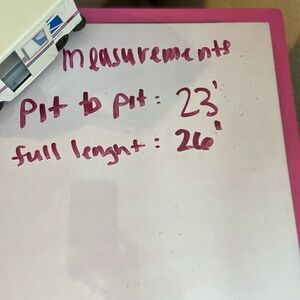 measurements
pit to pit: 23'
full lenght: 26'